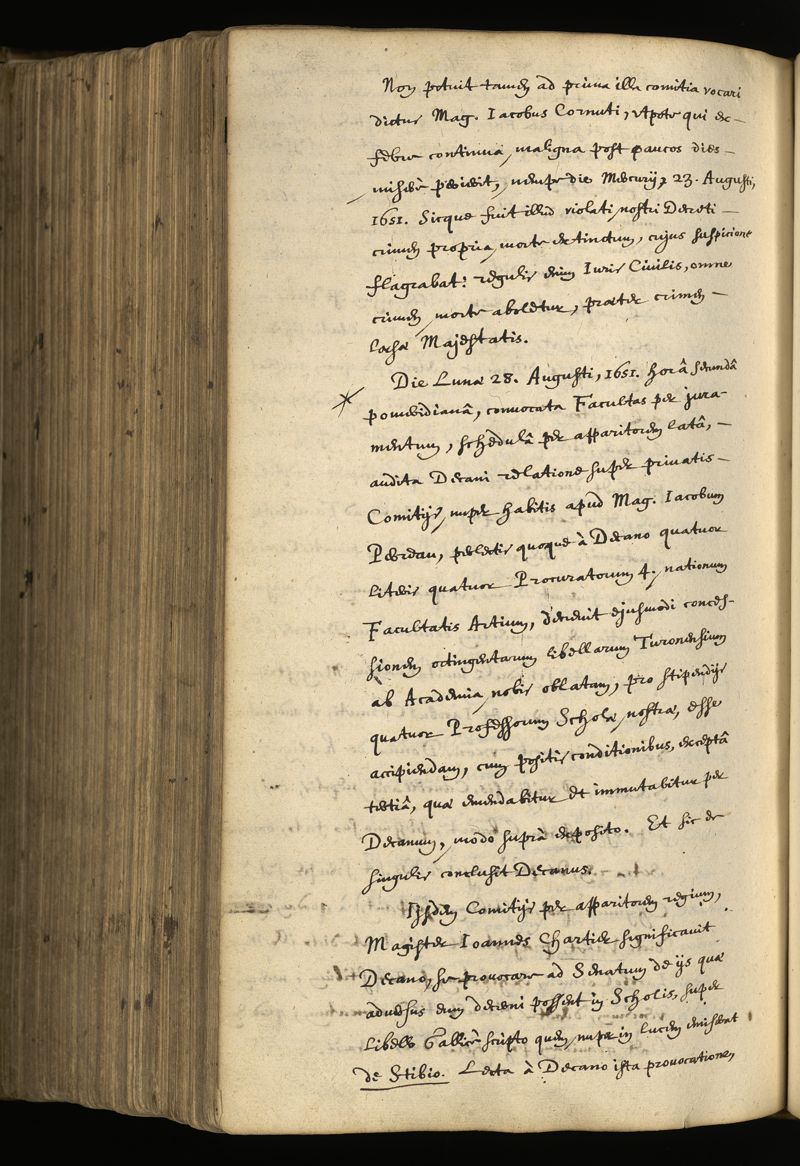 Non potuit tamen ad prima illa comitia vocari
dictus Mag. Iacobus Cornuti, utpote qui ex—
febre continua, maligna post paucos dies—
miserè perierit, nempe die Mercurij, 23. Augusti,
1651. Sicque fuit illud violati nostri Decreti—
crimen propria morte extinctum, cujus suspicione
flagrabat: regulis enim Iuris Civilis, omne
crimen morte aboletur, praeter crimen—
laesae Majestatis.
Die Lunae 28. Augusti, 1651. horâ secundâ
pomeridianâ, convocata Facultas per jura-
mentum, schedulâ per apparitorem latâ,—
audita Decani relatione super privatis—
Comitijs, nuper habitis apud Mag. Iacobum
Perreau, perlectis quoque à Decano quatuor
literis quatuor Procuratorum 4. nationum
Facultatis Artium, decrevit ejusmodi conces-
sionem octingentarum libellarum Turonensium
ab Academia nobis oblatam, pro stipendijs
quatuor Professorum Scholae nostrae, esse
accipiendam, cum positis conditionibus, exceptâ
tertiâ, quae emendabitur et immutabitur per
Decanum, modo suprà exposito. Et sic de
singulis conclusit Decanus.
Ijsdem Comitijs per apparitorem regium,
Magister Ioannes Chartier significavit
Decano, se provocare ad Senatum de ijs quae
adversus eum decerni possent in Scholis, super
libello Gallicè scripto quem nuper in lucem emiserat
de Stibio. Lecta à Decano ista provocatione,